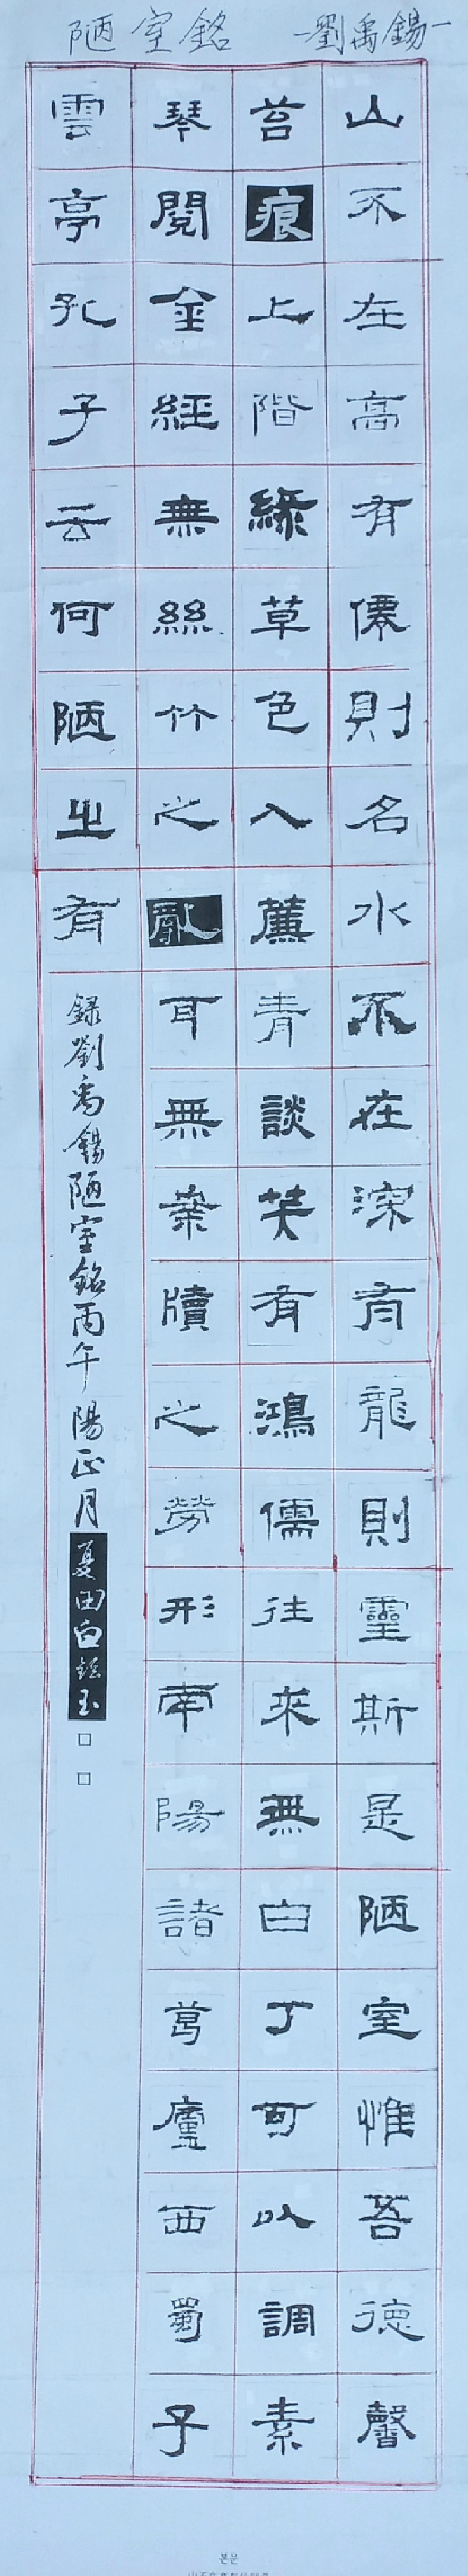 陋室銘 -劉禹錫-
山不在高有僊則名水不在深有龍則靈斯是陋室惟吾德馨
苔痕上階綠草色入簾青談笑有鴻儒往來無白丁可以調素
琴閱金經無絲竹之亂耳無案牘之勞形南陽諸葛廬西蜀子
雲亭孔子云何陋之有
錄劉禹錫陋室銘丙午陽正月夏田白鉉玉
본문